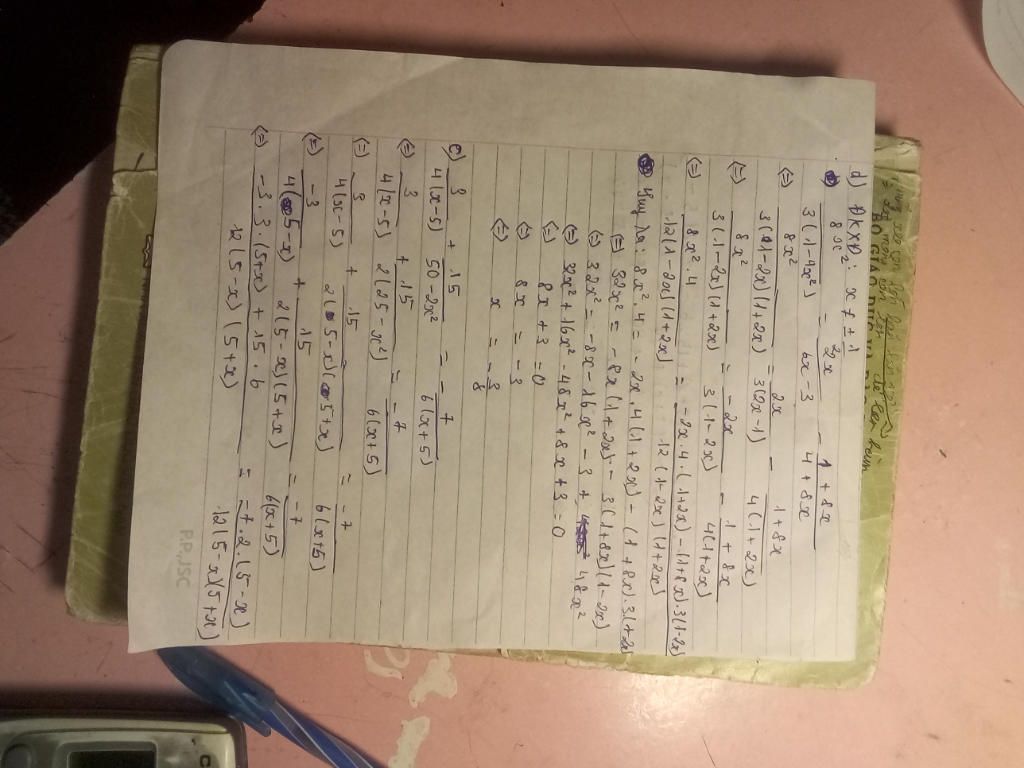 d) ĐKXĐ: x ≠ ± 1
8x² / 3(1-4x²) = 2x / 6x-3 - 1+8x / 4+8x
(=) 8x² / 3(1-2x)(1+2x) = 2x / 3(2x-1) - 1+8x / 4(1+2x)
(=) 8x² / 3(1-2x)(1+2x) = -2x / 3(1-2x) - 1+8x / 4(1+2x)
(=) 8x².4 / 12(1-2x)(1+2x) = -2x.4.(1+2x)-(1+8x).3(1-2x) / 12(1-2x)(1+2x)
8x².4 = -2x.4(1+2x) - (1+8x).3.(1-2x)
(=) 32x² = -8x(1+2x) - 3(1+8x)(1-2x)
(=) 32x² = -8x-16x²-3+ 48x²
(=) 32x²+16x²-48x²+8x+3=0
(=) 8x+3=0
(=) 8x = -3
(=) x = -3/8
e) 3 / 4(x-5) + 15 / 50-2x² = - 7 / 6(x+5)
(=) 3 / 4(x-5) + 15 / 2(25-x²) = -7 / 6(x+5)
(=) 3 / 4(x-5) + 15 / 2(5-x)(5+x) = -7 / 6(x+5)
(=) -3 / 4(5-x) + 15 / 2(5-x)(5+x) = -7 / 6(x+5)
(=) -3.3.(5+x)+15.6 / 12(5-x)(5+x) = -7.2.(5-x) / 12(5-x)(5+x)
P.P.,JSC